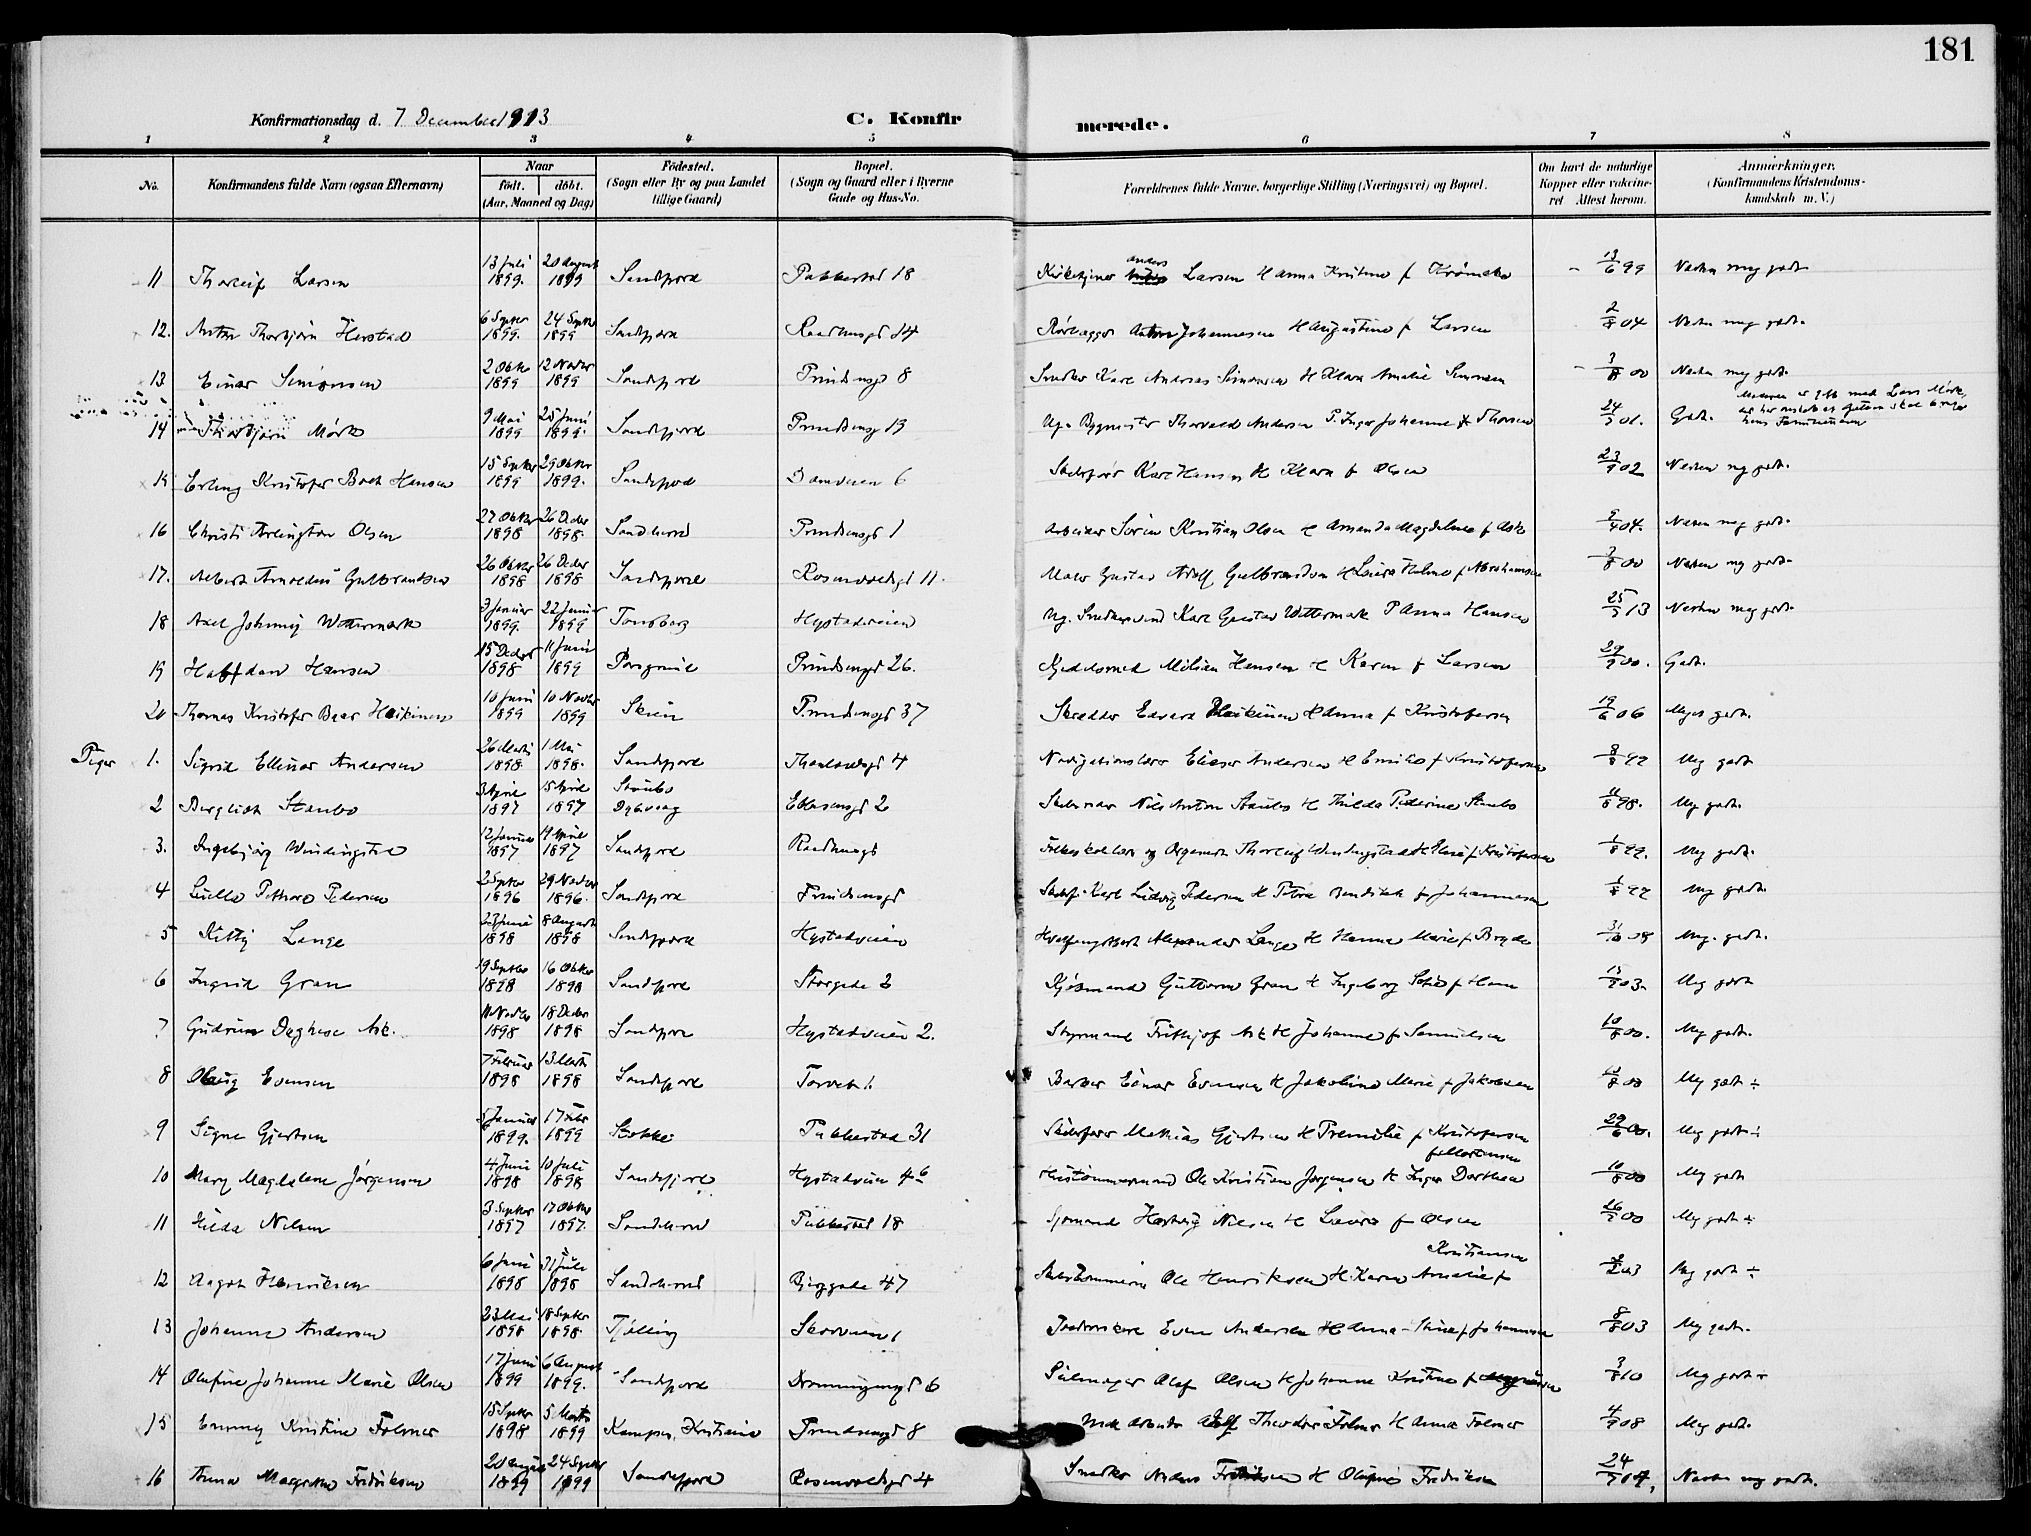 181
Konfirmationsdag d. 7 December 1913
C. Konfirmerede.
1 2 3 4 5 6 7 8
No. Konfirmandens fulde Navn (ogsaa Efternavn) Naar født. døbt. (Aar, Maaned og Dag) Fødested. (Sogn eller By og paa Landet tillige Gaard) Bopæl. (Sogn og Gaard eller i Byerne Gade og Hus-No. Forældrenes fulde Navne, borgerlige Stilling (Næringsvei) og Bopæl. Om havt de naturlige Kopper eller vaccineret Attest herom. Anmærkninger. (Konfirmandens Kristendomskundskab m. V.)
11 Thorleif Larsen 13 Juli 1899. 20 August 1899 Sandefjord Pukkestad 18 Kirketjener Anders Larsen H Hanna Kristine f 13/6 99 Næsten meg godt
12. Anton Thorbjørn Herstad 6 Septber 1899. 24 Septb 1899 Sandefjord Raadhusgd 14 Rørlægger Anton Johannesen H Augustine f Larsen 2/8 04 Næsten meg godt.
13 Einar Simonsen 2 Oktbr 1899 12 Novber 1899 Sandefjord Prindsensgd 8 Snedker Karl Andreas Simonsen H Klara Amalie Simonsen 3/8 00 Næsten meg godt.
14 Thorbjørn Mørk 9 Mai 1899 25 Juni 1899. Sandefjord Prindsensg 13 Ug. Bygmester Thorvald Andersen P. Inger Johanne f Thorsen 24/5 01. Godt. Moderen er gift med Lars Mørk,
15 Erling Kristofer Bach Hansen 15 Septber 1899 29 Oktbr 1899. Sandefjord Damveien 6 Skibsfører Karl Hansen H Klara f Olsen 23/9 02 Næsten meg godt.
16 Christi Arlington Olsen 27 Oktbr 1898 26 Decbr 1898. Sandeherred Prindsensgd 1 Arbeider Sören Kristian Olsen H Amanda Magdalene f Ask 04. Næsten meg godt.
17. Albert Arnoldus Gulbrandsen 26 Oktbr 1898 26 Decbr 1898 Sandefjord Rosenvoldgt 11. Maler Gustav Adolf Gulbrandsen H Laura Haline f Abrahamsen 3/8 00 Næsten meg godt.
18 Axel Johnny Wettermark 3 Januar 1899. 22 Januar 1899 Tønsberg Hystadveien Ug. Snedkersvend Karl Gustav Wettermark P Anna Hansen 25/5 13 Næsten meg godt.
19 Halfdan Hansen 15 Decbr 1898 11 Juni 1899 Porsgrund Prindsensgd 26. Kjedelsmed Milian Hansen H Karen f Larsen 29/9 00. Godt.
20 Thomas Kristofer Baar Heikinen 10 Juni 1899 10 Novber 1899 Skien Prindsensgd 37 Skrædder Edvard Heikinen H Anna f Kristofersen 19/6 06 Meget godt.
Piger 1. Sigrid Ellinor Andersen 26 Marts 1898 1 Mai 1898. Sandefjord Thaulowsgd 4 Navigationslærer Elieser Andersen H Emilie f Kristofersen 8/8 99 Meg godt
2 Bergliot Staubo 3 April 1897 15 April 1897 Staubo Dybvaag Ebbesensgd 2 Skibsreder Nils Anton Staubo H Thilda Pederine Staubo 11/8 98. Meg godt.
3. Ingebjørg Windingstad 12 Januar 1897 19 April 1897 Sandefjord Raadhusgd Folkeskolelærer og Organist Thorleif Windingstad H Elise f Kristofersen 1/8 99. Meg godt.
4 Lulle Pethora Pedersen 2 Septbr 1896 29 Novbr 1896. Sandefjord Prindsensgd Skibsf. Karl Ludvig Pedersen H Petra Bendikte f Johannesen 1/8 99 Meg godt.
5 Kitty Lange 23 Juni 1898 8 August 1898 Sandefjord Hystadveien Hvalfangstbest Alexander Lange H Hanna Marie f Bryde 31/10 08 Meg. godt.
6 Ingrid Gran 19 Septbr 1898 16 Oktbr 1898 Sandefjord Storgade 2 Kjøbmand Guttorm Gran H Ingeborg Sofie f Holm 13/9 03. Meg godt
7 Gudrun Daghese Ask. 11 Novbr 1898 18 Decbr 1898 Sandefjord Hystadveien 2. Styrmand Frithjof Ask H Johanne f Samuelsen 10/8 00. Meg godt.
8 Olaug Evensen 7 Februar 1898 13 Marts 1898 Sandefjord Torvet 1. Barber Einar Evensen H Jakobine Marie f Jakobsen 10/8 00 Meg godt ÷
9 Signe Gjertsen 5 Januar 1899. 17 Febr 1899 Stokke Pukkestad 31 Skibsfører Mathias Gjertsen H Premilie f Kristofersen 29/6 00. Meg godt ÷
10 Mary Magdalene Jørgensen 4 Juni 1898 10 Juli 1898 Sandefjord Hystadveien 46 Hustømmermand Ole Kristian Jørgensen H Inger Dorthea f Mortensen 10/8 00 Meg godt
11 Hilda Nilsen 3 Septber 1897 17 Oktbr 1897. Sandeherred Pukkestad 18 Sjømand Hartvig Nilsen H Laura f Olsen 26/9 00 Meg godt ÷
12 Aagot Henriksen 6 Juni 1898 31 Juli 1898 Sandeherred Bjerggade 47 Skibstømmerm Ole Henriksen H Karen Amalie f Kristiansen 03 Meg godt ÷
13 Johanne Andersen 23 Mai 1898 18 Septber 1898. Tjølling Skovveien 1 Even Andersen H Anna f Johannesen 8/8 03 Meg godt.
14 Olufine Johanne Marie Olsen 17 Juni 1899 6 August 1899. Sandefjord Dronningensgd 6 Seilmager Olaf Olsen H Johanne Kristine f 3/8 10 Meg godt ÷
15 Emmy Kristine Folmer 15 Septbr 1898 5 Marts 1899 Kampen, Kristiania Prindsensgd 8 Adolf Theodor Folmer H Anna Folmer 4/9 08 Meg godt.
16 Anna Margrethe Fredriksen 20 August 1899 24 Septbr 1899 Sandefjord Rosenvoldgd 4 Snedker Anders Fredriksen H Olufine Fredriksen 24/5 Næsten meg godt.